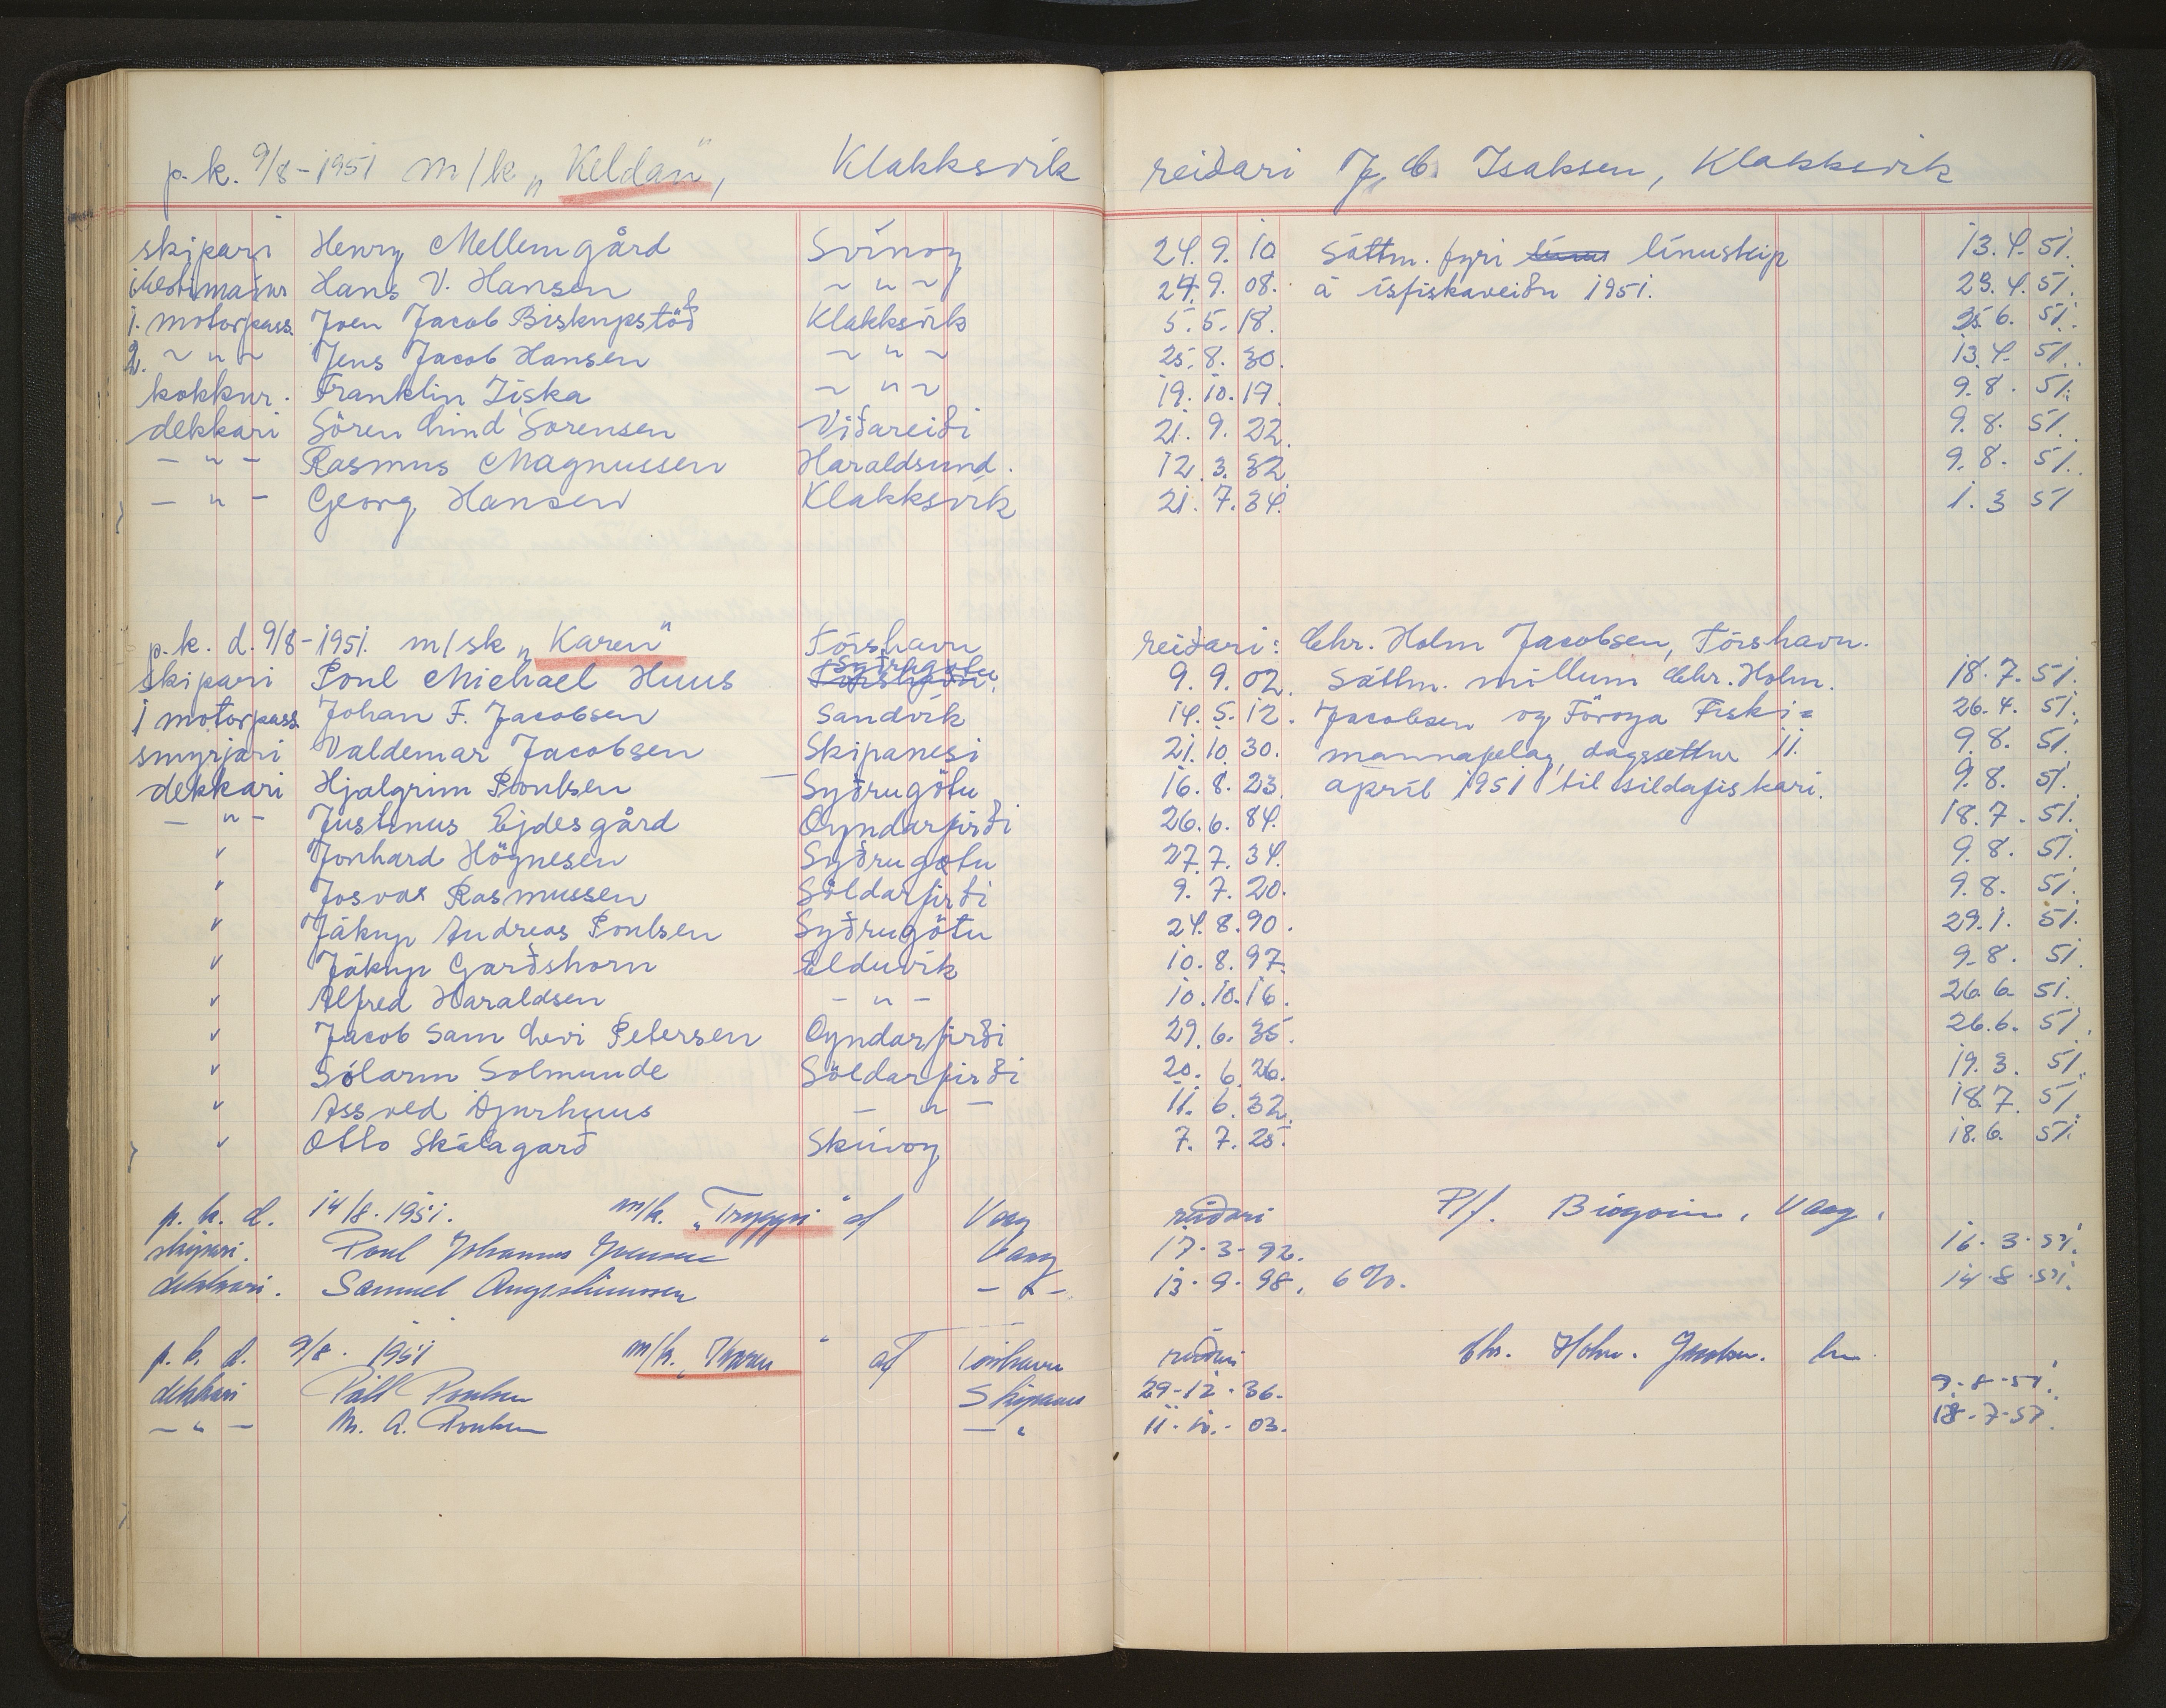 p. k. 9/8-1951 m/k „Keldan", Klakksvik reiðari J. C. Isaksen, Klakksvik
skipari Henry Mellemgård Svínoy 24. 9. 10 Sáttm. fyri línuskip 13. 4. 51.
bestimaður Hans V. Hansen ~ " ~ 24. 9. 08. á ísfiskaveiðu 1951. 23. 4. 51.
1. motorpass. Joen Jacob Biskupstöð Klakksvík 5. 5. 18. 25. 6. 51.
2. ~ " ~ Jens Jacob Hansen ~ " ~ 25. 8. 30. 13. 4. 51.
kokkur. Franklin Ziska ~ " ~ 19. 10. 17. 9. 8. 51.
dekkari Sören Lind Sorensen Viðareiði 21. 9. 22. 9. 8. 51.
- " - Rasmus Magnussen Haraldsund. 12. 3. 32 9. 8. 51.
- " - Georg Hansen Klakksvík 21. 7. 34. 1. 3 51
p. k. d. 9/8-1951. m/sk „Karen" Tórshavn reiðari: Chr. Holm Jacobsen, Tórshavn.
skipari Poul Michael Huus Syðrugøtu 9. 9. 02. Sáttm. millum Chr. Holm. 18. 7. 51.
1 motorpass. Johan F. Jacobsen Sandvík 14. 5. 12. Jacobsen og Föroya Fiski= 26. 4. 51.
smyrjari Valdemar Jacobsen Skipanesi 21. 10. 30. mannafelag, dagsettur 11. 9. 8. 51.
dekkari Hjalgrim Poulsen Syðrugötu 16. 8. 23. apríl 1951 til sildafiskari. 9. 8. 51.
- " - Justinus Ejdesgård Oyndarfirði 26. 6. 84. 18. 7. 51.
" Jonhard Högnesen Syðrugøtu 27. 7. 34. 9. 8. 51.
" Josvas Rasmussen Söldarfirði 9. 7. 20. 9. 8. 51.
" Jákup Andreas Poulsen Syðrugötu 24. 8. 90. 29. 1. 51.
" Jákup Garðshorn Elduvík 10. 8. 97. 9. 8. 51.
" Alfred Haraldsen - " - 10. 10. 16. 26. 6. 51.
" Jacob Sam Levi Petersen Oyndarfirði 29. 6. 35. 26. 6. 51.
" Sólarm Solmunde Söldarfirði 20. 6. 26. 19. 3. 51.
" Assved Djurhuus - " - 11. 6. 32. 18. 7. 51
" Otto Skálagarð Skúvoy 7. 7. 25. 18. 6. 51.
p. k. d. 14/8. 1951. m/k. „Tryggvi" af Vaag reiðari P/f. Vaag.
skipari. Poul Johannus Vaag 17-3-92. 16. 3. 51.
dekkari. Samuel Augustinussen - " - 13. 9. 98, 6%. 14. 8. 51.
p. k. d. 9/8. 1951 m/k. „Karen" af Tórshavn reiðari Chr. Holm. Jacobsen.
dekkari Páll Poulsen Skipanes 29-12-36. 9. 8. 51.
- " - M. A. Poulsen - " 11. 10. 03. 18-7-51.